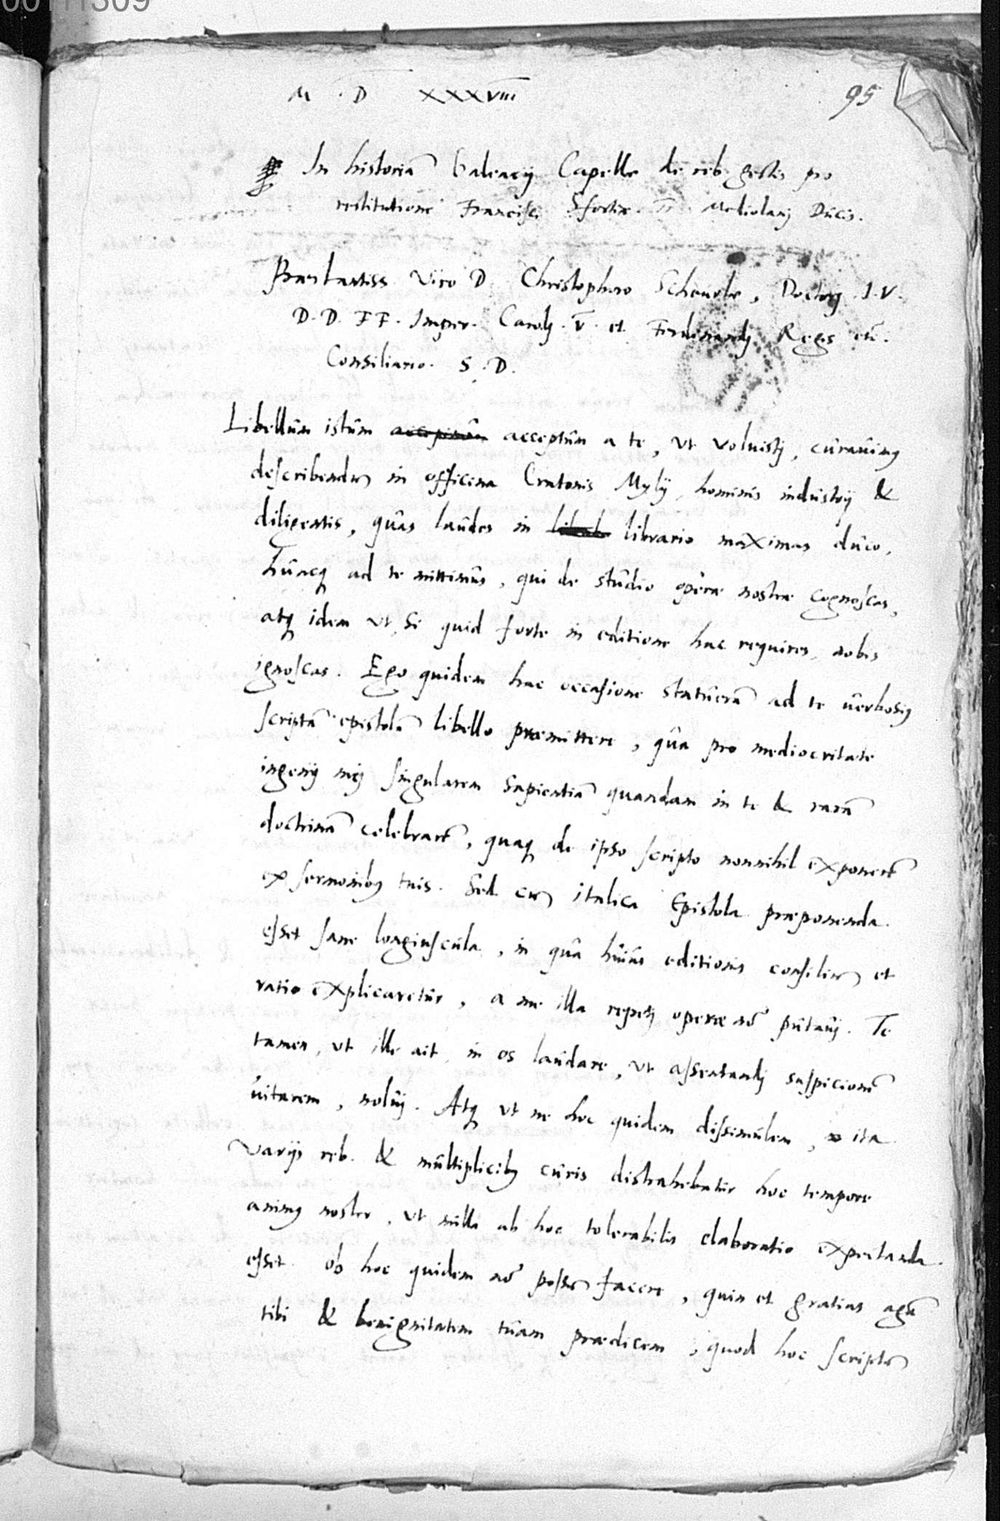 00111309
M D XXXVIII
95
In historiā Galeacij Capellę de reb. gestis pro
restitutione Francisci Sfortiæ Mediolanj Ducis.
Præstantiss. Viro D. Christophoro Scheurle, Doctorj I. V.
D. D. FF. Imper. Carolj. V. et Ferdinandj Regs etc.
Consiliario. S. D.
Libellum istum acceptum a te, ut voluistj, curauimꝯ
describendum in officina Cratonis Mylij, hominis industrij &
diligentis, quas laudes in librario maximas duco.
Huncq; ad te mittimus, qui de studio operæ nostræ cognoscas,
atq; idem ut, si quid forte in editione hac requires, nobis
ignoscas. Ego quidem hac occasione statuerā ad te uerbosiꝯ
scriptā epistolā libello præmittere, qua pro mediocritate
ingenij mej singularem sapientiā quandam in te & rarā
doctrinā celebrarē, quaq; de ipso scripto nonnihil exponerē
ex sermonibꝯ tuis. Sed cum italica Epistola præponenda
esset sane longiuscula, in qua huius editionis consilium et
ratio explicaretur, a me illa repetj operæ nō putauj. Te
tamen, ut ille ait, in os laudare, ut assentandj suspicionē
uitarem, noluj. Atq; ut ne hoc quidem dissimulem, ita
varijs reb. & multiplicibꝯ curis distrahebatur hoc tempore
animꝯ noster, ut nulla ab hoc tolerabilis elaboratio expectanda
esset. Ob hoc quidem nō possum facere, quin et gratias agā
tibi & benignitatem tuam prædicem, quod hoc scriptum